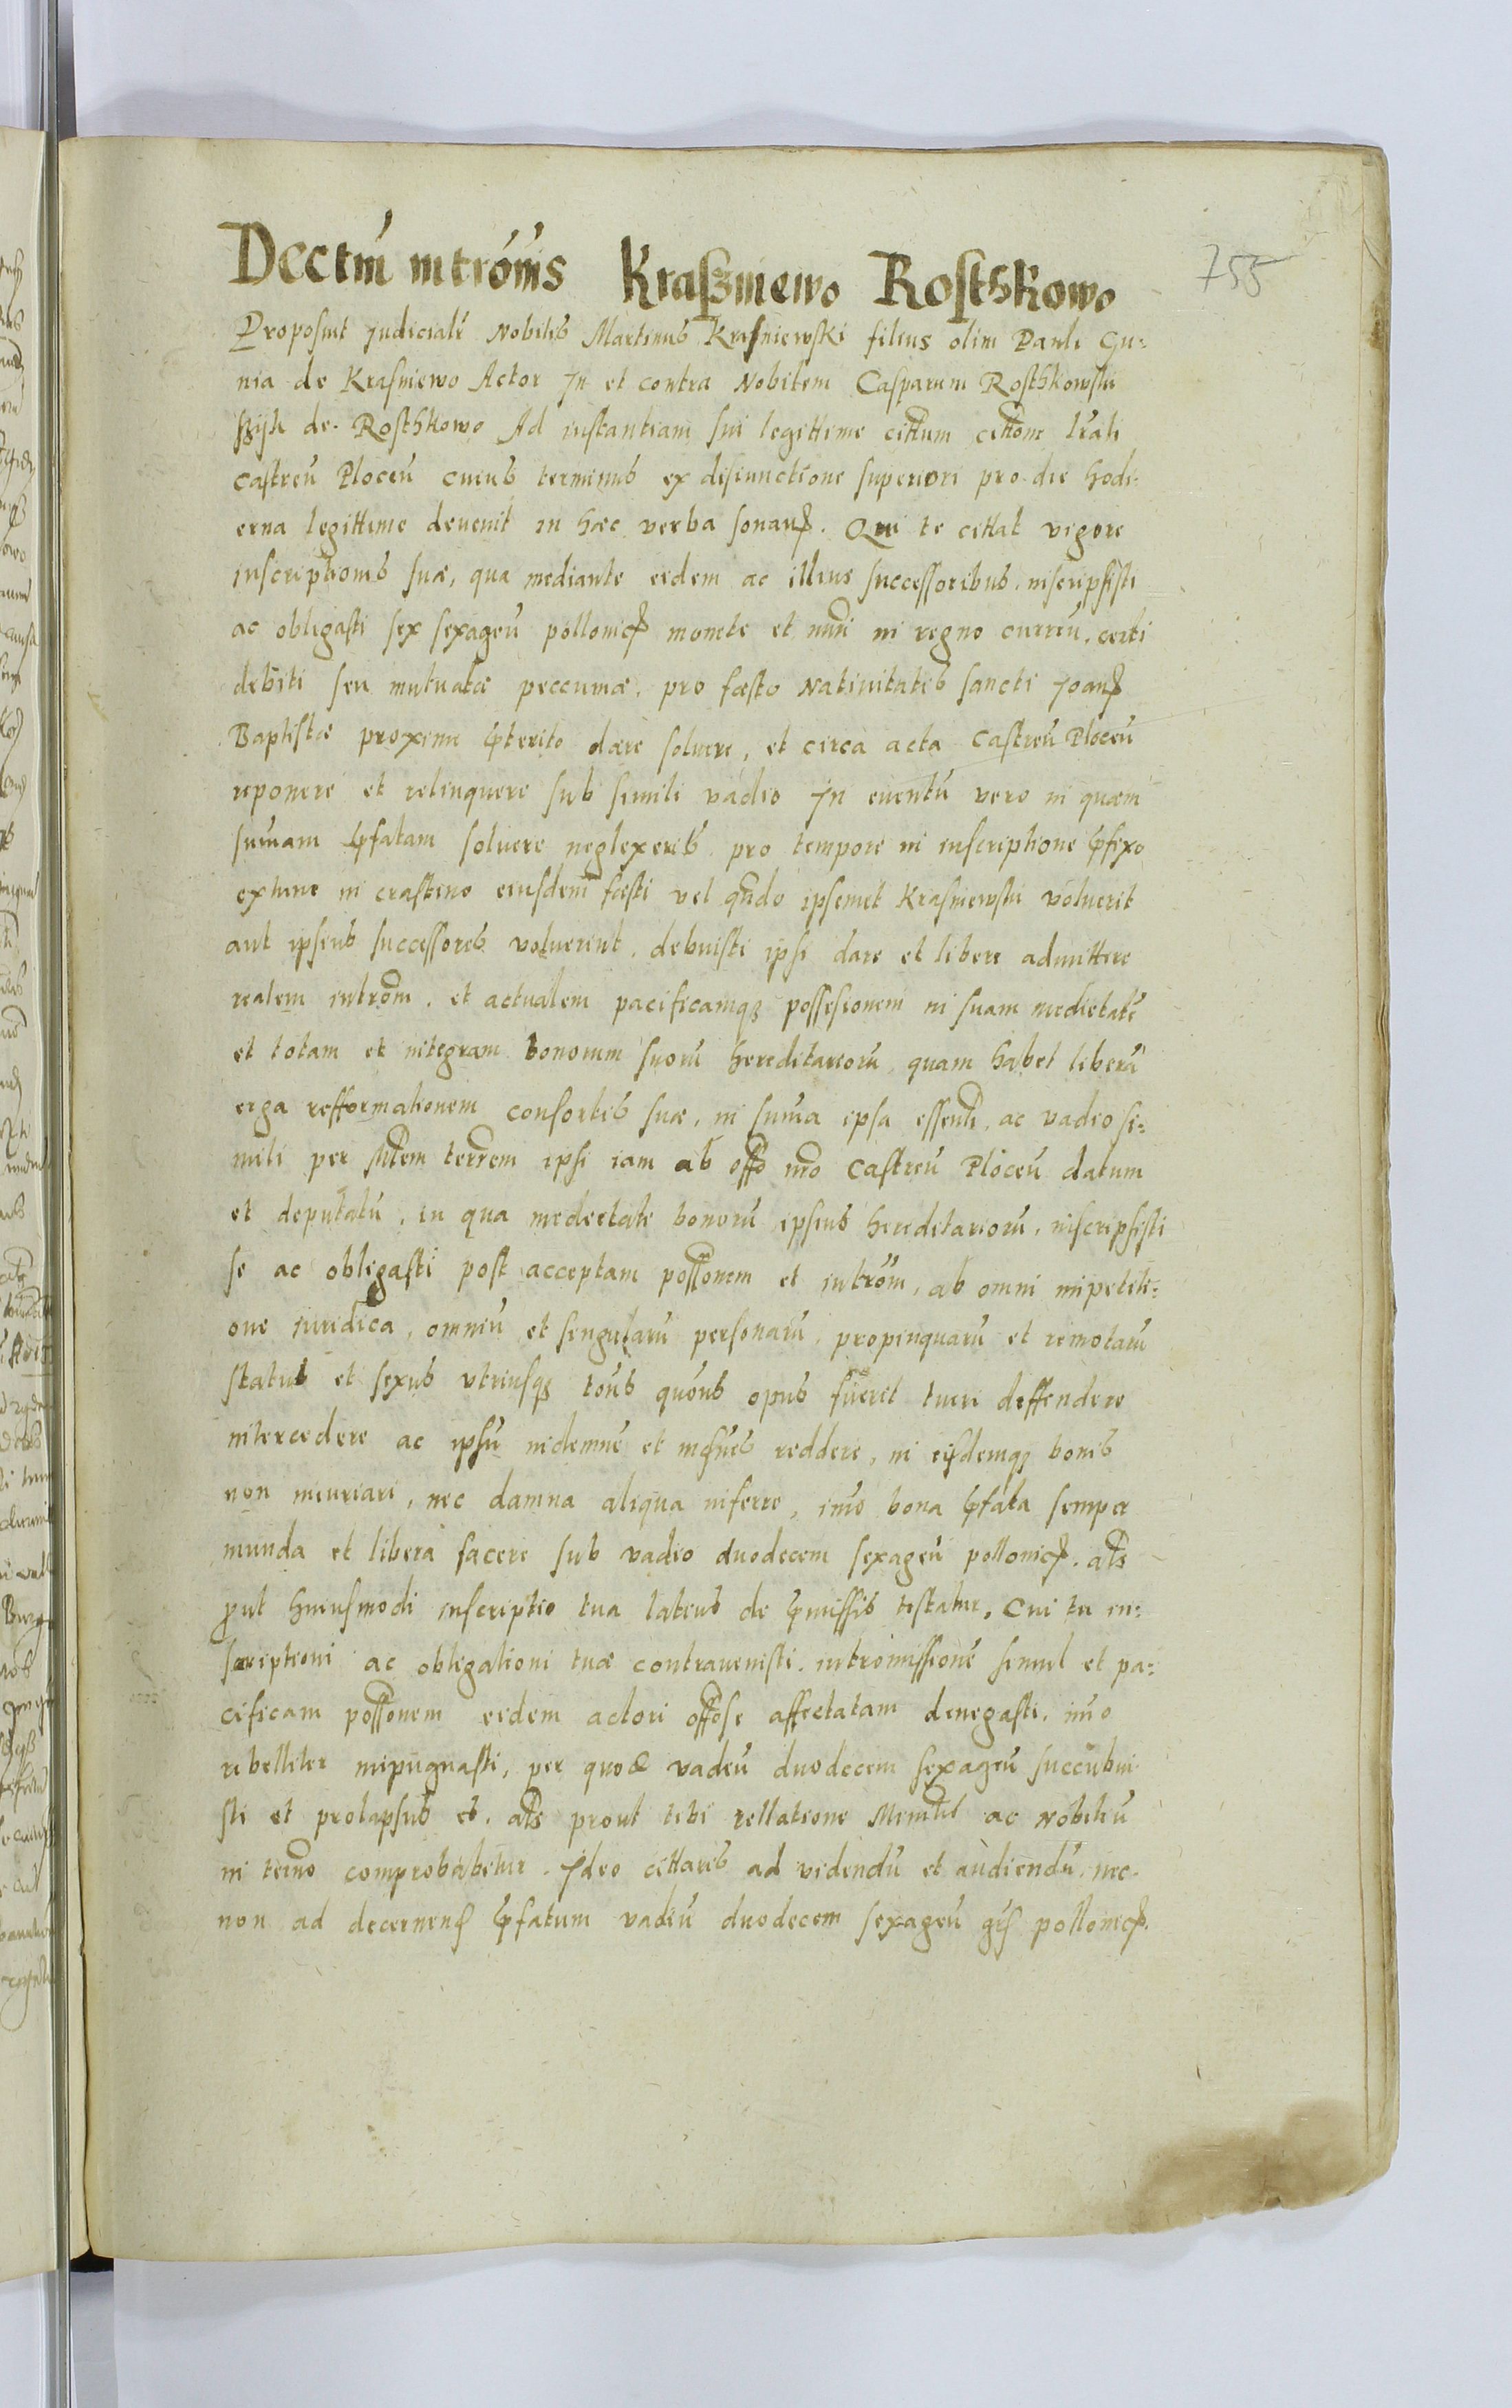 755
Dectm intromis Kraszniewo Rosthkowo
Proposuit judiciali Nobilis Martinus Krasniewski filius olim Pauli Gu=
nia de Krasniewo Actor In et contra Nobilem Casparum Rosthkowski
de Rosthkowo Ad instantiam sui legittime cittum cittone lrali
castreñ Ploceñ cuius terminus ex disiunctione superiori pro die hodi=
erna legittime devenit in hæc verba sonans. Qui te cittat vigore
inscriptionis suæ, qua mediante eidem ac illius successoribus inscripsisti
ac obligasti sex sexageñ pollonics monete et numi in regno curreñ. certi
debiti seu mutuatæ peccuniæ, pro fæsto Nativitatis sancti Joans
Baptistæ proxime pterito dare soluere, et circa acta castreñ Ploceñ
reponere et relinquere sub simili vadio In euentũ vero in quæm
sumam pfatam soluere neglexeris pro tempore in inscriptione pfixo
extunc in crastino eiusdem fæsti vel qndo ipsemet Krasniewski voluerit
aut ipsius successores voluerint, debuisti ipsi dare et libere admittere
realem introm. et actualem pacificamq possesionem in suam medietatẽ
et totam et integram bonorum suorũ hereditariorũ, quam habet liberã
erga refformationem consortis suæ, in suma ipsa essenti, ac vadio si=
mili per mrem terrem ipsi iam ab offo nro castreñ Ploceñ datum
et deputatũ, in qua medietate bonorũ ipsius hereditariorũ, inscripsisti
se ac obligasti post acceptam possonem et introm, ab omni impetiti=
one iuridica, omniũ et singularũ personarũ, propinquarũ et remotarũ
status et sexus utriusq tous quous opus fuerit tueri deffendere
intercedere ac ipsũ indemnẽ et reddere, in eisdemq bonis
non iniuriari, nec damna aliqua inferre, imo bona pfata semper
munda et libera facere sub vadio duodecem sexageñ pollonics. als
put huiusmodi inscriptio tua latius de pmissis testatur. Cui tu in=
scriptioni ac obligationi tuæ contravenisti. intromissionẽ simul et pa=
cificam possonem eidem actori offose affectatam denegasti, imo
rebelliter impugnasti, per quod vadiũ duodecem sexageñ succubui
sti et prolapsus es. als prout tibi rellatione Ministl ac Nobiliũ
in termo comprobabitur. Ideo cittaris ad videndũ et audiendũ. nec
non ad decernens pfatum vadiũ duodecem sexageñ grs pollonics.